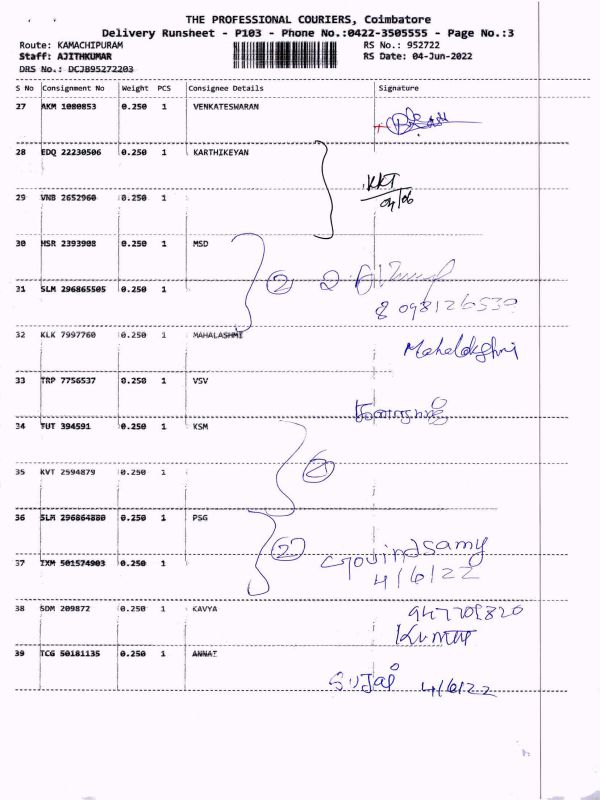 THE PROFESSIONAL COURIERS, Coimbatore
Delivery Runsheet - P103 - Phone No.:0422-3505555 - Page No.:3
Route: KAMACHIPURAM RS No.: 952722
Staff: AJITHKUMAR RS Date: 04-Jun-2022
DRS No.: DCJB95272203
S No Consignment No Weight PCS Consignee Details Signature
27 AKM 1080853 0.250 1 VENKATESWARAN
28 EDQ 22230506 0.250 1 KARTHIKEYAN
KKT
04/06
29 VNB 2652960 0.250 1
30 HSR 2393908 0.250 1 MSD
2
31 SLM 296865505 0.250 1
8098126530
32 KLK 7997760 0.250 1 MAHALASHMI
Mahalakshmi
33 TRP 7756537 0.250 1 VSV
34 TUT 394591 0.250 1 KSM
35 KVT 2594879 0.250 1
36 SLM 296864880 0.250 1 PSG
2 Govindsamy
37 IXM 501574903 0.250 1
4/6/22
38 SDM 209872 0.250 1 KAVYA
947709820
Kumar
39 TCG 50181135 0.250 1 ANNAI
Sujai 4/6/22